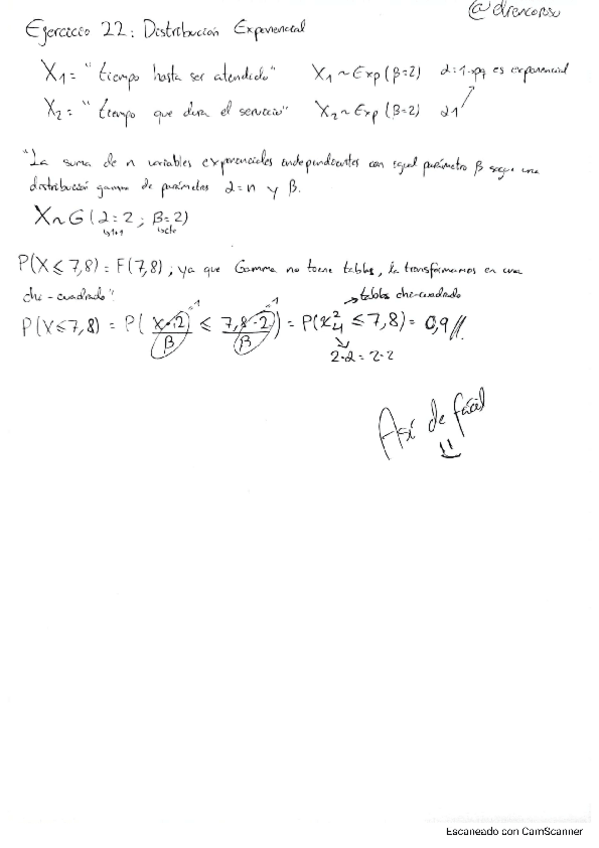 @drenconsu
Ejercicio 22: Distribución Exponencial
X₁ = "tiempo hasta ser atendido" X₁ ~ Exp (β=2) α: 1 → pq es exponencial
X₂ = "tiempo que dura el servicio" X₂ ~ Exp (β=2) α1
"La suma de n variables exponenciales independientes con igual parámetro β sigue una
distribución gamma de parámetros α=n y β.
X ~ G (α=2 ; β=2)
P(X ≤ 7,8) = F(7,8), ya que Gamma no tiene tablas, la transformamos en una
chi-cuadrado"
→ tablas chi-cuadrado
P(X ≤ 7,8) = P( X·2 / β ≤ 7,8·2 / β ) = P(x²₄ ≤ 7,8) = 0,9//
2·α = 2·2
Así de fácil
Escaneado con CamScanner